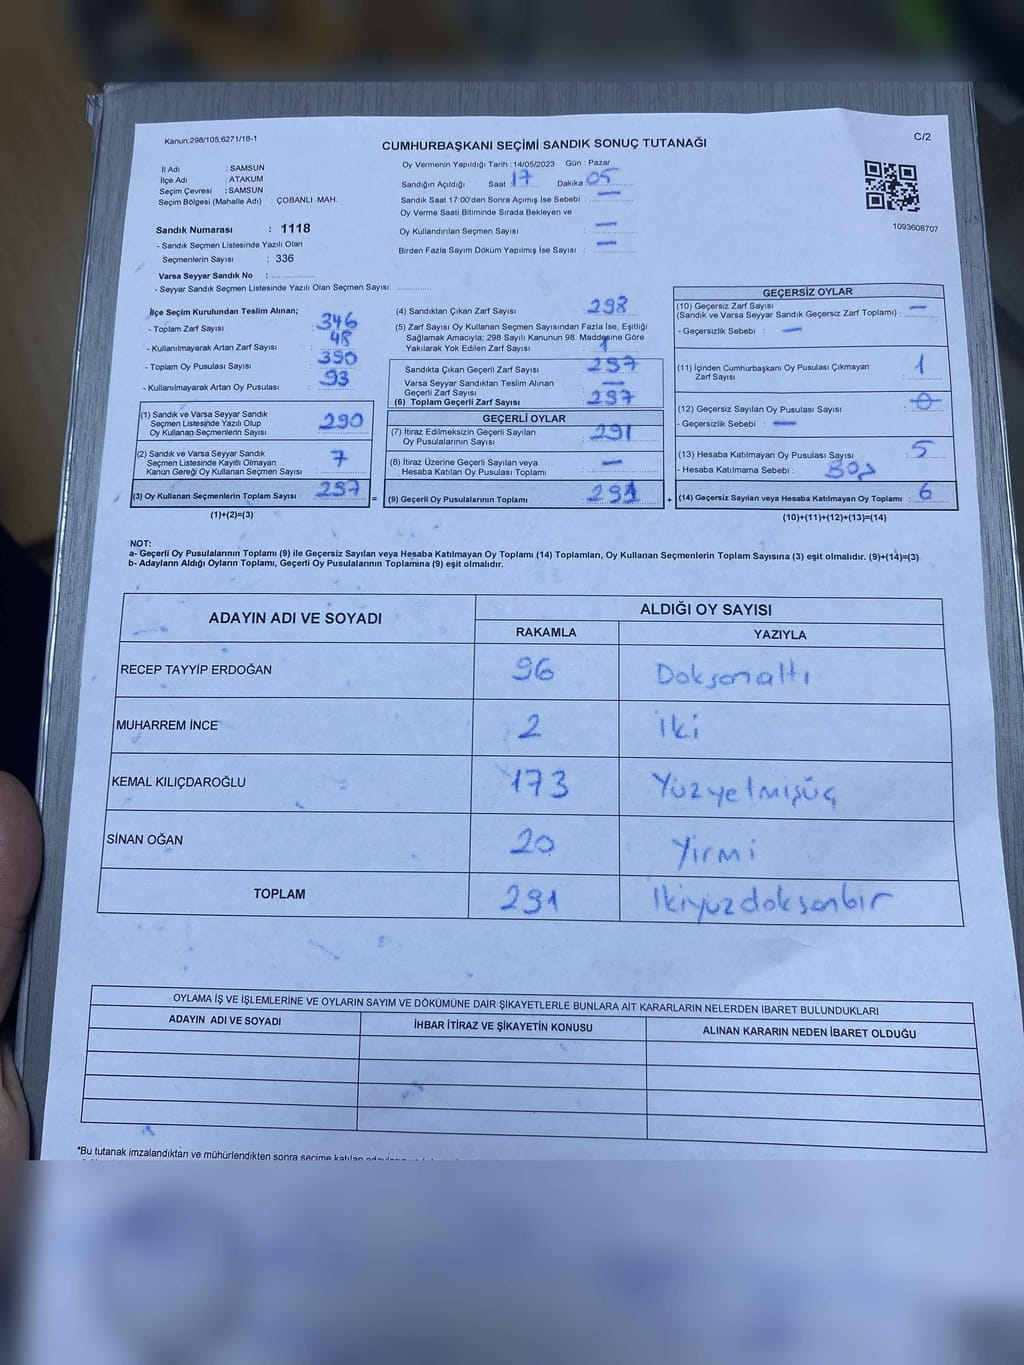 Kanun;298/105;6271/18-1
C/2
CUMHURBAŞKANI SEÇİMİ SANDIK SONUÇ TUTANAĞI
İl Adı : SAMSUN
İlçe Adı : ATAKUM
Seçim Çevresi : SAMSUN
Seçim Bölgesi (Mahalle Adı) : ÇOBANLI MAH.
Sandık Numarası : 1118
- Sandık Seçmen Listesinde Yazılı Olan
Seçmenlerin Sayısı : 336
Varsa Seyyar Sandık No : ................
- Seyyar Sandık Seçmen Listesinde Yazılı Olan Seçmen Sayısı: .............
Oy Vermenin Yapıldığı Tarih : 14/05/2023 Gün : Pazar
Sandığın Açıldığı Saat 17 Dakika 05
Sandık Saat 17:00'den Sonra Açımış İse Sebebi : —
Oy Verme Saati Bitiminde Sırada Bekleyen ve
Oy Kullandırılan Seçmen Sayısı : —
Birden Fazla Sayım Döküm Yapılmış İse Sayısı : —
1093608707
İlçe Seçim Kurulundan Teslim Alınan;
- Toplam Zarf Sayısı : 346
- Kullanılmayarak Artan Zarf Sayısı : 48
- Toplam Oy Pusulası Sayısı : 390
- Kullanılmayarak Artan Oy Pusulası : 93
(1) Sandık ve Varsa Seyyar Sandık
Seçmen Listesinde Yazılı Olup
Oy Kullanan Seçmenlerin Sayısı : 290
(2) Sandık ve Varsa Seyyar Sandık
Seçmen Listesinde Kayıtlı Olmayan
Kanun Gereği Oy Kullanan Seçmen Sayısı : 7
(3) Oy Kullanan Seçmenlerin Toplam Sayısı : 297 =
(1)+(2)=(3)
(4) Sandıktan Çıkan Zarf Sayısı : 298
(5) Zarf Sayısı Oy Kullanan Seçmen Sayısından Fazla İse, Eşitliği
Sağlamak Amacıyla; 298 Sayılı Kanunun 98. Maddesine Göre
Yakılarak Yok Edilen Zarf Sayısı : 1
Sandıkta Çıkan Geçerli Zarf Sayısı : 297
Varsa Seyyar Sandıktan Teslim Alınan
Geçerli Zarf Sayısı : —
(6) Toplam Geçerli Zarf Sayısı : 297
GEÇERLİ OYLAR
(7) İtiraz Edilmeksizin Geçerli Sayılan
Oy Pusulalarının Sayısı : 291
(8) İtiraz Üzerine Geçerli Sayılan veya
Hesaba Katılan Oy Pusulası Toplamı : —
(9) Geçerli Oy Pusulalarının Toplamı : 291 +
GEÇERSİZ OYLAR
(10) Geçersiz Zarf Sayısı
(Sandık ve Varsa Seyyar Sandık Geçersiz Zarf Toplamı) : —
- Geçersizlik Sebebi : —
(11) İçinden Cumhurbaşkanı Oy Pusulası Çıkmayan
Zarf Sayısı : 1
(12) Geçersiz Sayılan Oy Pusulası Sayısı : 0
- Geçersizlik Sebebi : —
(13) Hesaba Katılmayan Oy Pusulası Sayısı : 5
- Hesaba Katılmama Sebebi : Boş
(14) Geçersiz Sayılan veya Hesaba Katılmayan Oy Toplamı : 6
(10)+(11)+(12)+(13)=(14)
NOT:
a- Geçerli Oy Pusulalarının Toplamı (9) ile Geçersiz Sayılan veya Hesaba Katılmayan Oy Toplamı (14) Toplamları, Oy Kullanan Seçmenlerin Toplam Sayısına (3) eşit olmalıdır. (9)+(14)=(3)
b- Adayların Aldığı Oyların Toplamı, Geçerli Oy Pusulalarının Toplamına (9) eşit olmalıdır.
ADAYIN ADI VE SOYADI ALDIĞI OY SAYISI
RAKAMLA YAZIYLA
RECEP TAYYİP ERDOĞAN 96 Doksanaltı
MUHARREM İNCE 2 iki
KEMAL KILIÇDAROĞLU 173 Yüzyetmişüç
SİNAN OĞAN 20 Yirmi
TOPLAM 291 İkiyüzdoksanbir
OYLAMA İŞ VE İŞLEMLERİNE VE OYLARIN SAYIM VE DÖKÜMÜNE DAİR ŞİKAYETLERLE BUNLARA AİT KARARLARIN NELERDEN İBARET BULUNDUKLARI
ADAYIN ADI VE SOYADI İHBAR İTİRAZ VE ŞİKAYETİN KONUSU ALINAN KARARIN NEDEN İBARET OLDUĞU
*Bu tutanak imzalandıktan ve mühürlendikten sonra seçime katılan